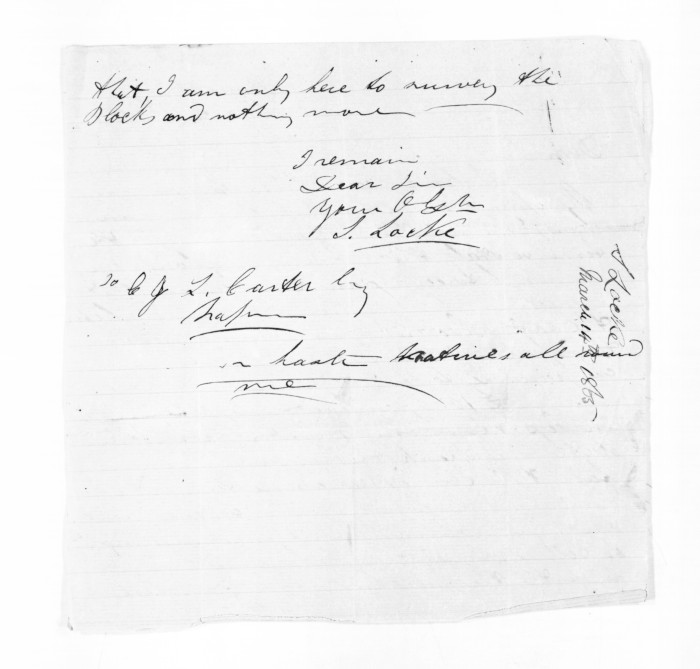 that, I am only here to survey the
blocks and nothing more
I remain
Dear Sir
your Obt
S. Locke
To C J L. Carter Esq
Napier
in haste natives all round
me
S Locke
March 14th 1865